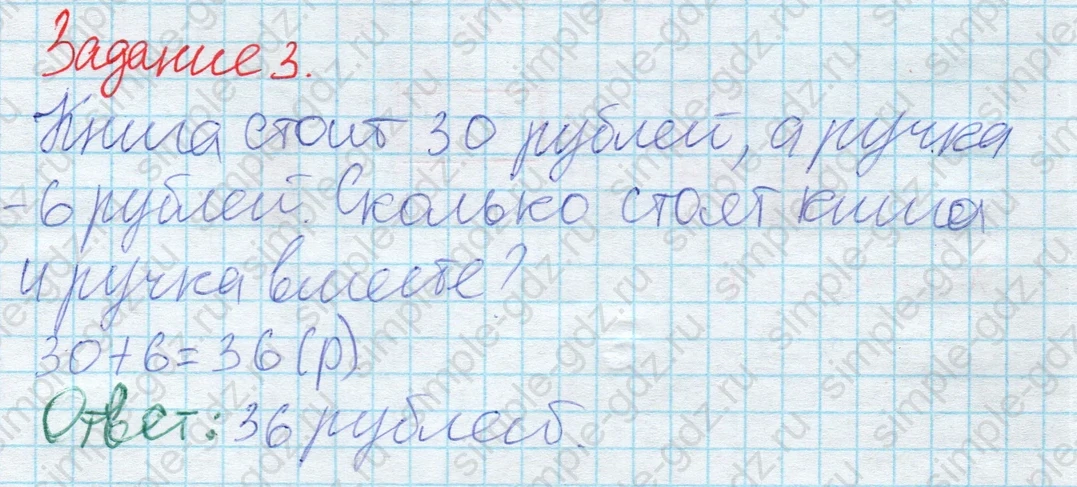 Задание 3.
Книга стоит 30 рублей, а ручка
- 6 рублей. Сколько стоят книга
и ручка вместе?
30+6=36 (р)
Ответ: 36 рублей.
simple-gdz.ru